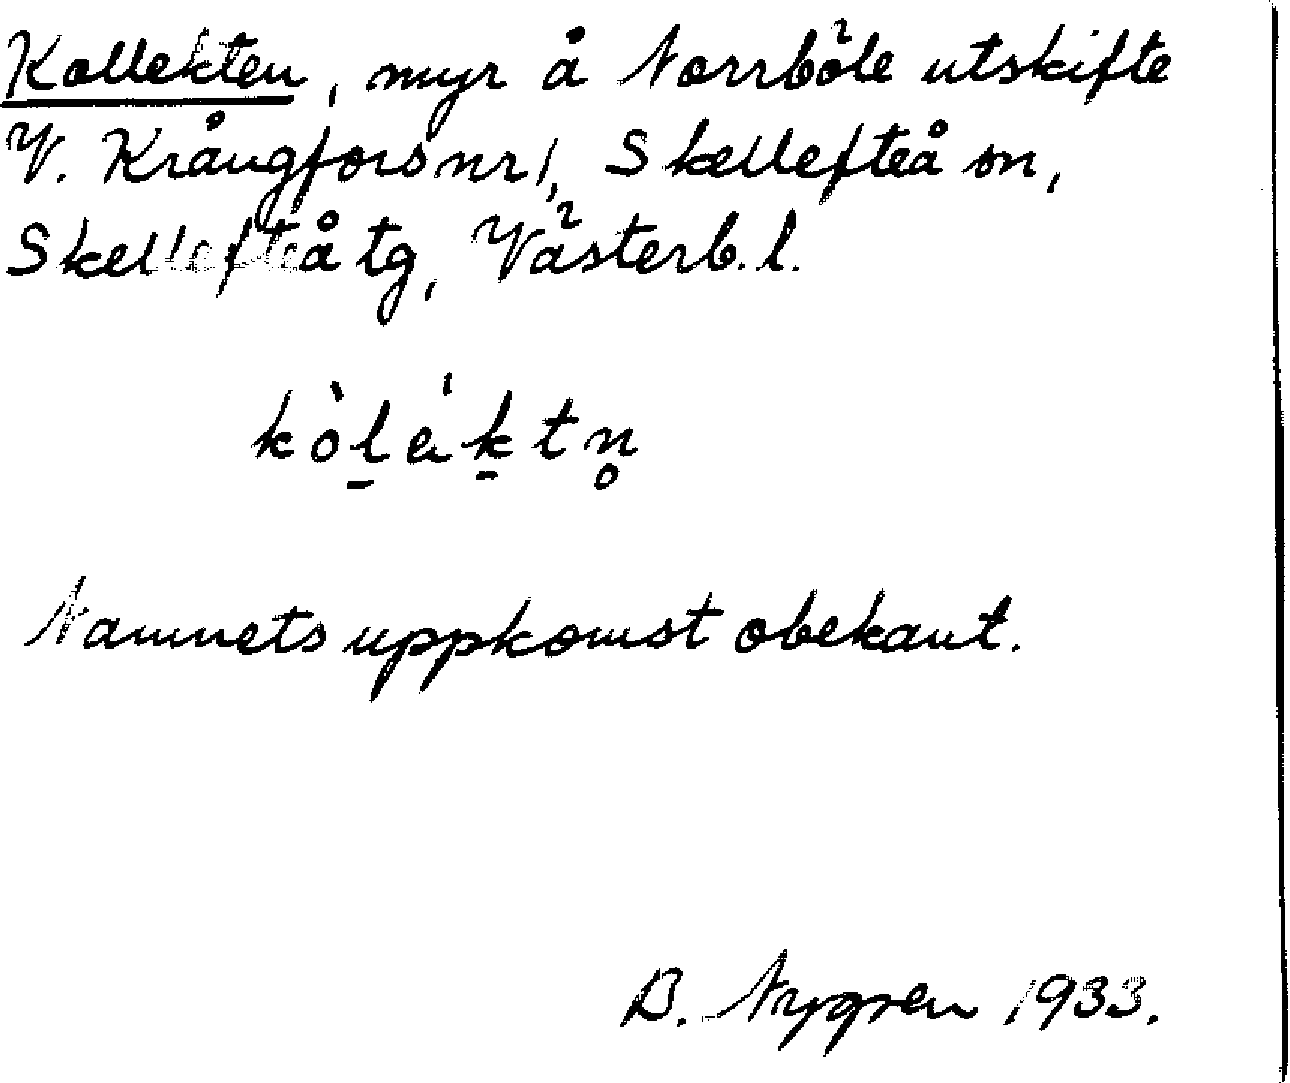 Kollekten, myr å Norrböle utskifte
V. Krångfors nr 1, Skellefteå sn,
Skellefteå tg, Västerb. l.
kòl̠éḵtn̥
Namnets uppkomst obekant.
B. Nygren 1933.